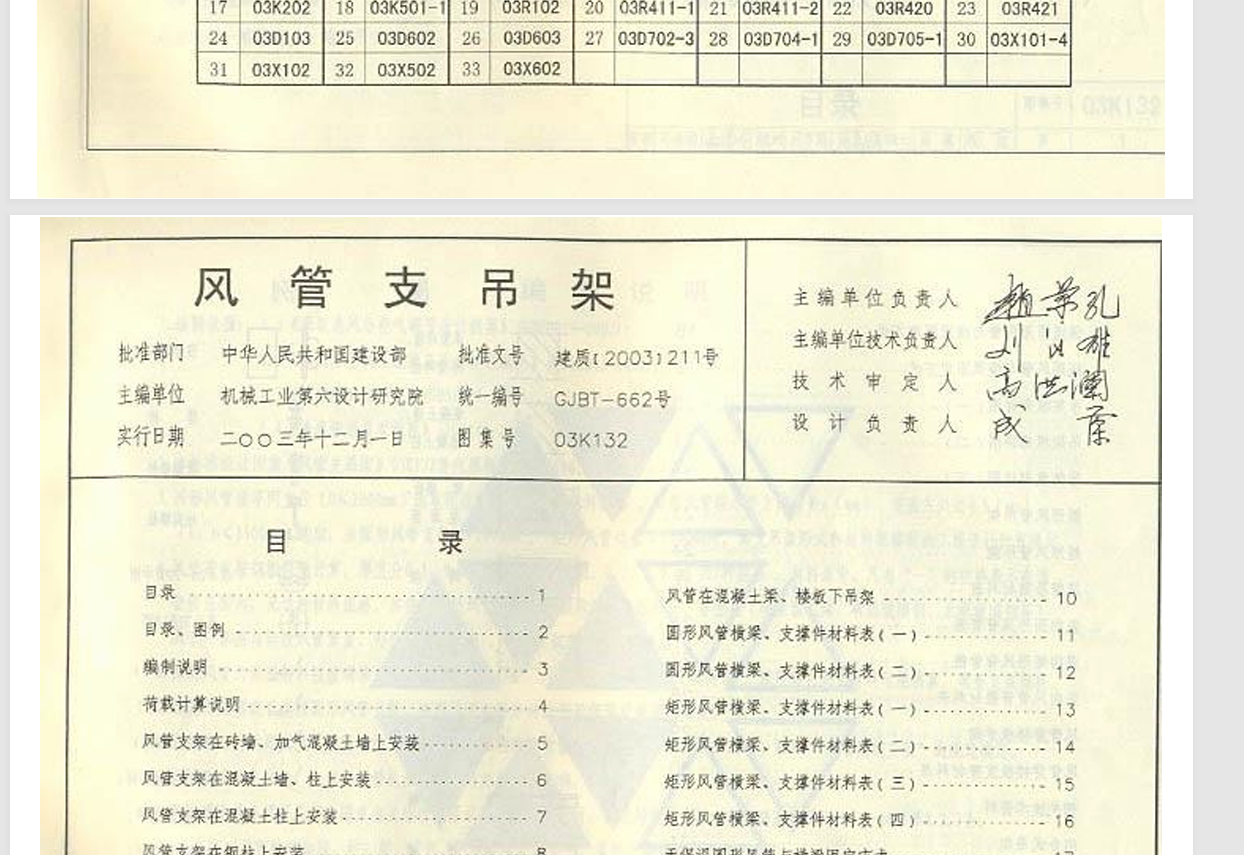 17 03K202 18 03K501-1 19 03R102 20 03R411-1 21 03R411-2 22 03R420 23 03R421
24 03D103 25 03D602 26 03D603 27 03D702-3 28 03D704-1 29 03D705-1 30 03X101-4
31 03X102 32 03X502 33 03X602
风管支吊架
批准部门 中华人民共和国建设部 批准文号 建质[2003]211号
主编单位 机械工业第六设计研究院 统一编号 GJBT-662号
实行日期 二〇〇三年十二月一日 图集号 03K132
主编单位负责人
主编单位技术负责人
技术审定人 高洪澜
设计负责人
目录
目录 1
目录、图例 2
编制说明 3
荷载计算说明 4
风管支架在砖墙、加气混凝土墙上安装 5
风管支架在混凝土墙、柱上安装 6
风管支架在混凝土柱上安装 7
风管支架在钢柱上安装 8
风管在混凝土梁、楼板下吊架 10
圆形风管横梁、支撑件材料表(一) 11
圆形风管横梁、支撑件材料表(二) 12
矩形风管横梁、支撑件材料表(一) 13
矩形风管横梁、支撑件材料表(二) 14
矩形风管横梁、支撑件材料表(三) 15
矩形风管横梁、支撑件材料表(四) 16